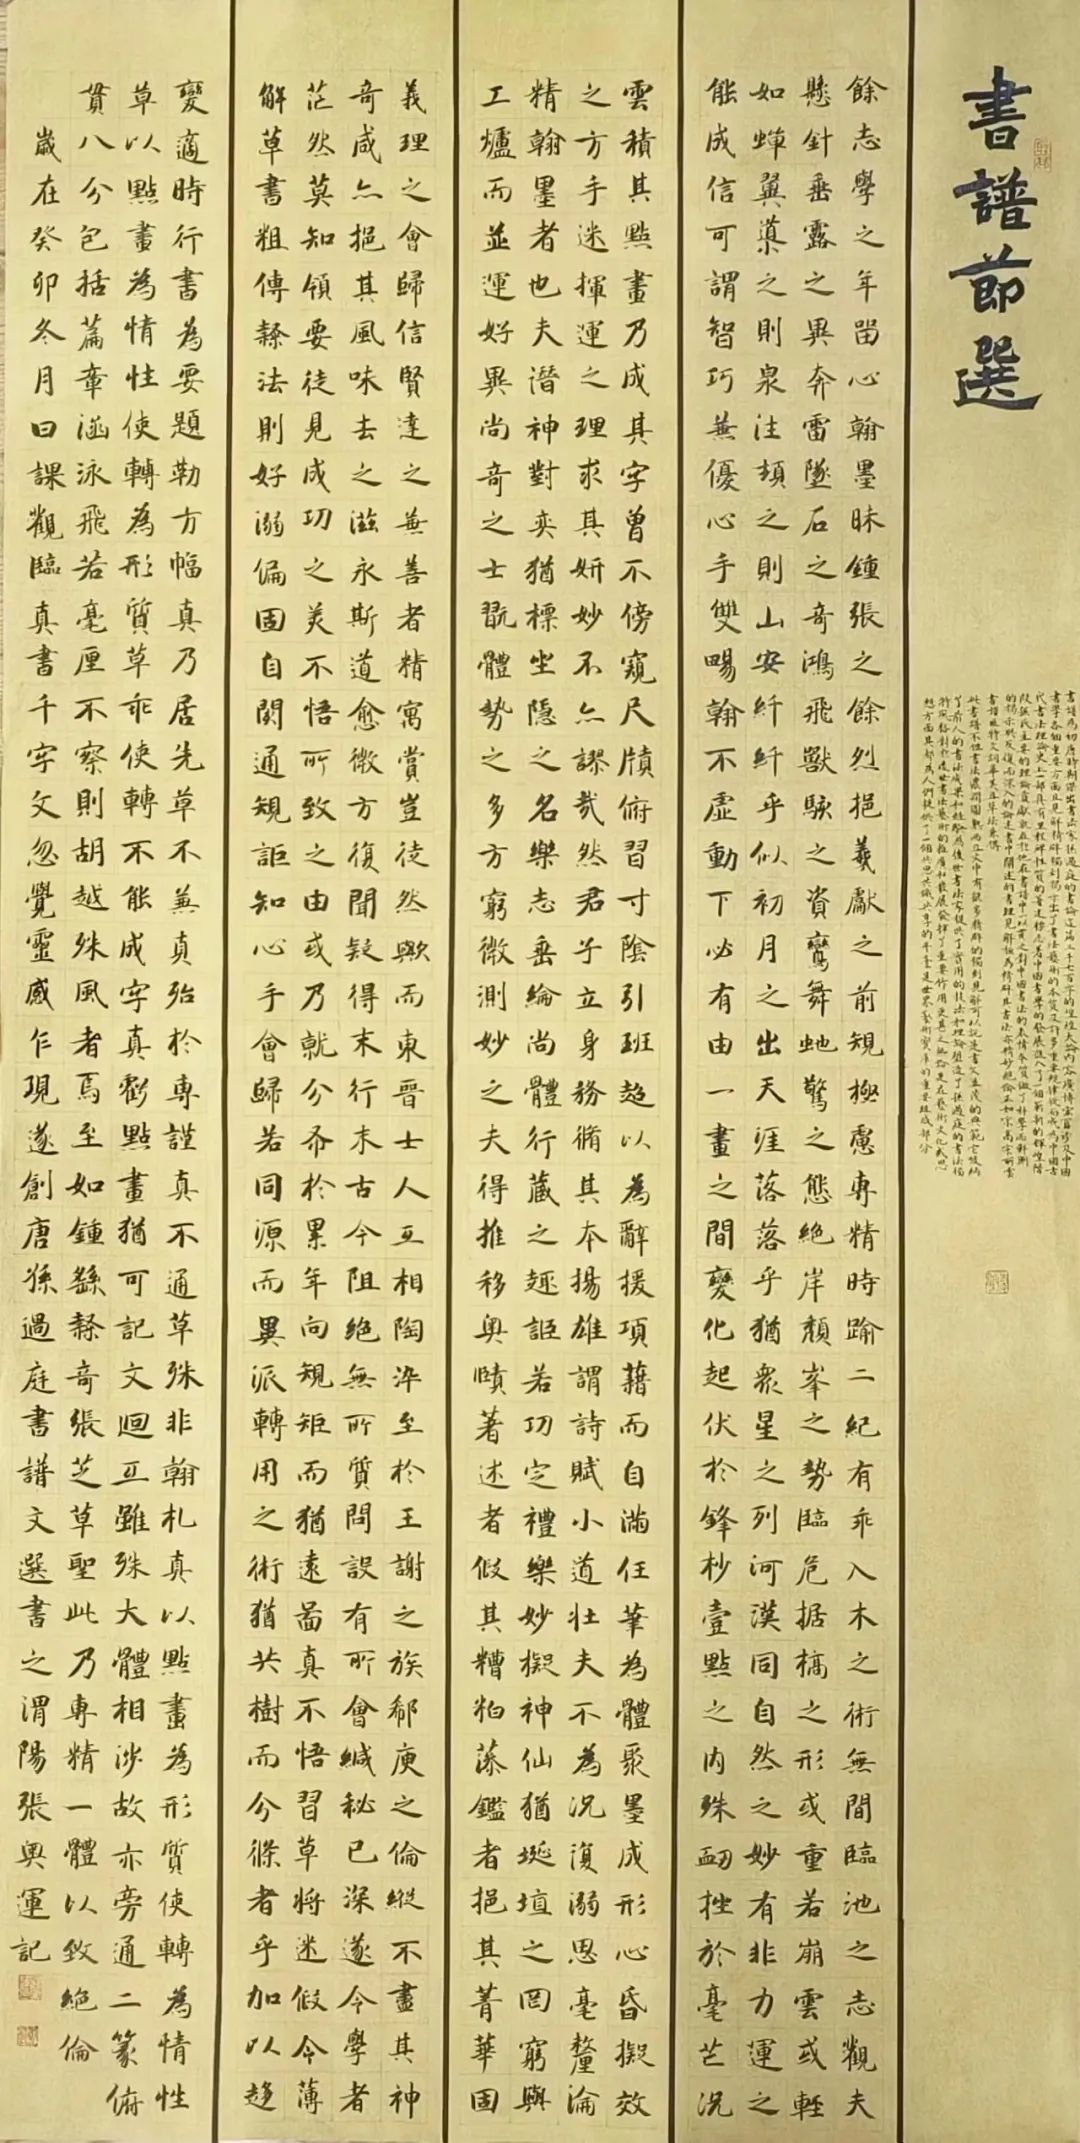 書譜節選
書譜為初唐時期傑出書法家孫過庭的書論這篇三千七百字的煌煌大論內容廣博宏富涉及中國
書學各個重要方面且見解精辟獨到揭示出了書法藝術的本質及許多重要規律從而成為中國古
代書法理論史上一部具有里程碑性質的著述標志著中國書學的發展進入了一個嶄新的輝煌階
段
書譜
餘志學之年留心翰墨昧鍾張之餘烈挹羲獻之前規極慮專精時踰二紀有乖入木之術無間臨池之志觀夫
懸針垂露之異奔雷墜石之奇鴻飛獸駭之資鸞舞虵驚之態絕岸頹峯之勢臨危据槁之形或重若崩雲或輕
如蟬翼導之則泉注頓之則山安纖纖乎似初月之出天涯落落乎猶眾星之列河漢同自然之妙有非力運之
能成信可謂智巧兼優心手雙暢翰不虛動下必有由一畫之間變化起伏於鋒杪壹點之內殊衄挫於毫芒況
雲積其點畫乃成其字曾不傍窺尺牘俯習寸陰引班超以為辭援項藉而自滿任筆為體聚墨成形心昏擬效
之方手迷揮運之理求其妍妙不亦謬哉然君子立身務脩其本揚雄謂詩賦小道壯夫不為況復溺思毫釐淪
精翰墨者也夫潛神對奕猶標坐隱之名樂志垂綸尚體行藏之趣詎若功定禮樂妙擬神仙猶埏埴之罔窮與
工爐而並運好異尚奇之士翫體勢之多方窮微測妙之夫得推移奧賾著述者假其糟粕藻鑑者挹其菁華固
義理之會歸信賢達之兼善者精寓賞豈徒然歟而東晉士人互相陶染至於王謝之族郗庾之倫縱不盡其神
奇咸亦挹其風味去之滋永斯道愈微方復聞疑得末行末古今阻絕無所質問設有所會緘秘已深遂令學者
茫然莫知領要徒見成功之美不悟所致之由或乃就分布於累年向規矩而猶遠圖真不悟習草將迷假令薄
解草書粗傳隸法則好溺偏固自閡通規詎知心手會歸若同源而異派轉用之術猶共樹而分條者乎加以趨
變適時行書為要題勒方幅真乃居先草不兼真殆於專謹真不通草殊非翰札真以點畫為形質使轉為情性
草以點畫為情性使轉為形質草乖使轉不能成字真虧點畫猶可記文迴互雖殊大體相涉故亦旁通二篆俯
貫八分包括篇章涵泳飛若毫厘不察則胡越殊風者焉至如鍾繇隸奇張芝草聖此乃專精一體以致絕倫
歲在癸卯冬月日課觀臨真書千字文忽覺靈感乍現遂創唐孫過庭書譜文選書之渭陽張奧運記